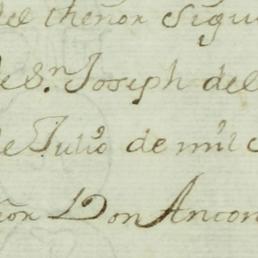 del thenor Sigui
de Sn Joseph del
de Julio de mil
ñor Don Anton